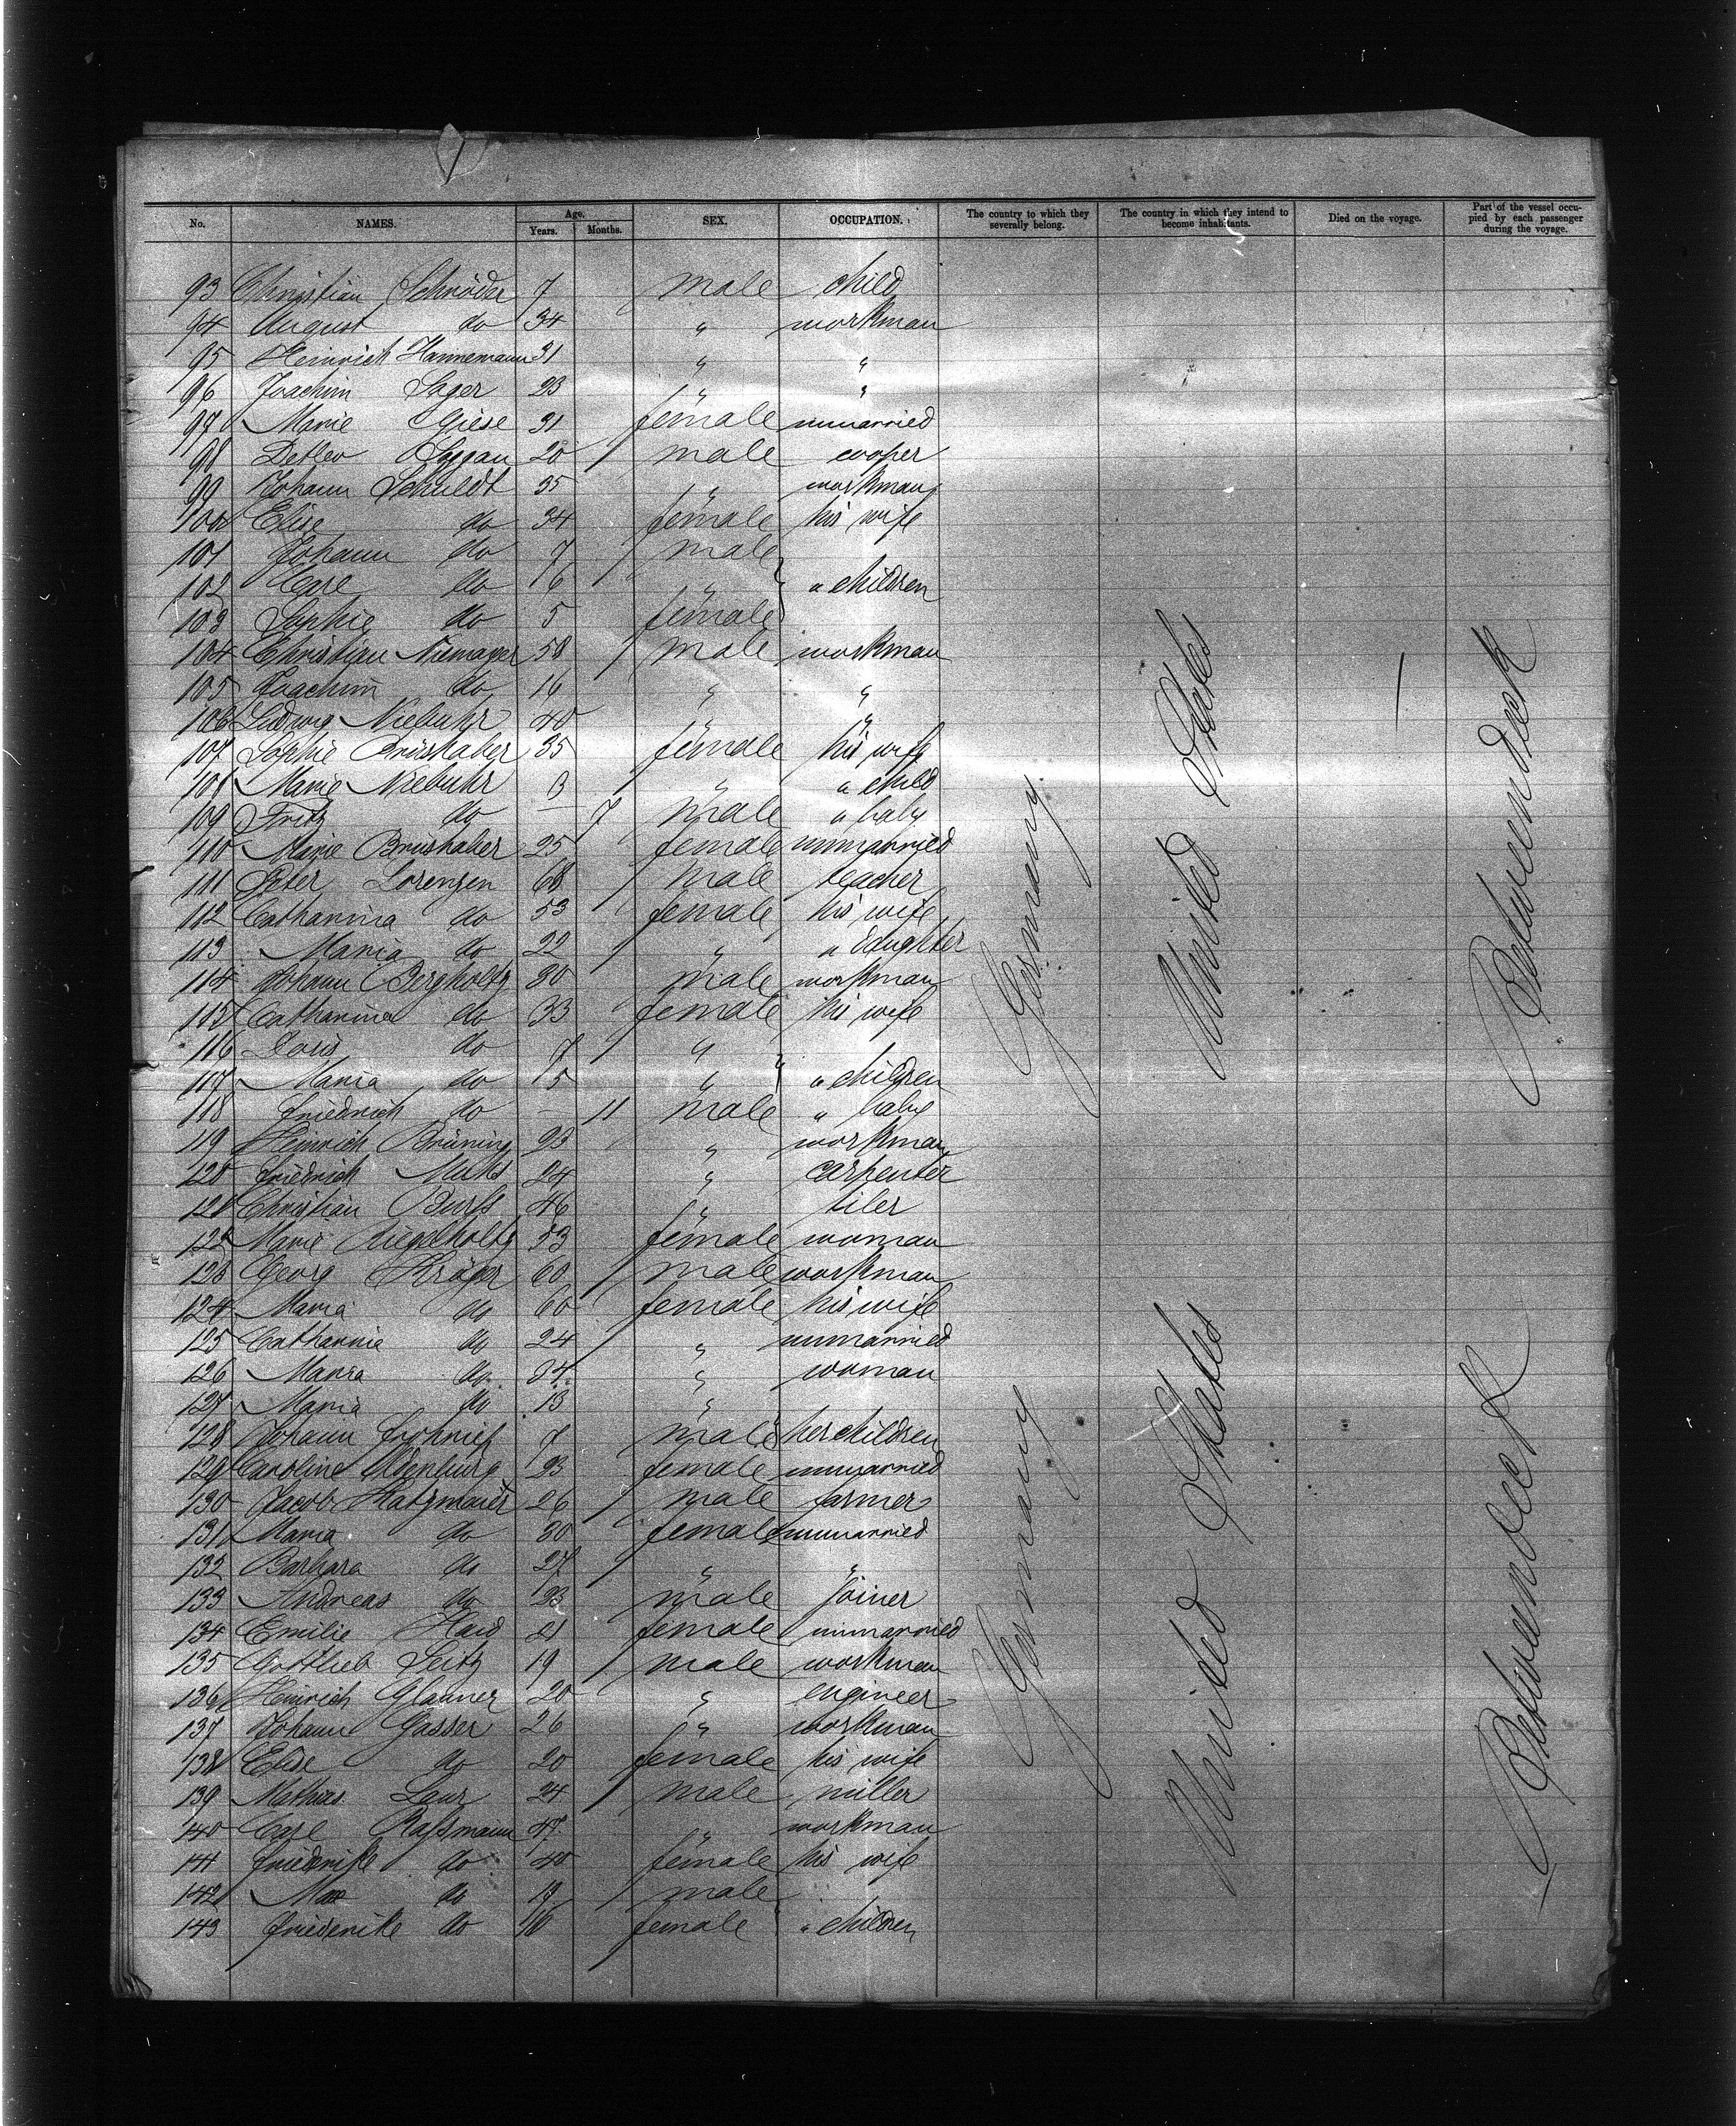 No. NAMES. Age. Years. Months. SEX. OCCUPATION. The country to which they severally belong. The country in which they intend to become inhabitants. Died on the voyage. Part of the vessel occupied by each passenger during the voyage.
93 Christian Schröder 7 male child
94 August do 34 " workman
95 Heinrich Hannemann 31 " "
96 Joachim Sager 23 " "
97 Marie Giese 31 female unmarried
98 Detlev 20 male cooper
99 Johann Schuldt 35 " workman
100 Elise do 34 female his wife
101 Johann do 7 male
102 Carl do 6 " " children
103 Sophie do 5 female
104 Christian Niemayer 58 male workman
105 Joachim do 16 " "
106 Ludwig Niebuhr 40 " "
107 Sophie Brüshaber 35 female his wife
108 Marie Niebuhr " a child
109 Fritz do — 7 male " baby
110 Marie Brüshaber 25 female unmarried
111 Peter Lorenzen 68 male teacher
112 Catharina do 53 female his wife
113 Maria do 22 " " daughter
114 Johann Bergholtz 30 male workman
115 Catharina do 33 female his wife
116 Doris do 7 "
117 Maria do 5 " " children
118 Friedrich do — 11 male " baby
119 Heinrich Brüning 23 " workman
120 Friedrich 24 " carpenter
121 Christian 46 " tiler
122 Marie 53 female woman
123 Georg Kröger 60 male workman
124 Maria do 60 female his wife
125 Catharina do 24 " unmarried
126 Maria do 34 " woman
127 Maria do "
128 Johann 7 male her children
129 Caroline Oldenburg 23 female unmarried
130 Jacob Katzmaier 26 male farmer
131 Maria do 30 female unmarried
132 Barbara do 27 " "
133 Andreas do 23 male joiner
134 Emilie 21 female unmarried
135 Gottlieb Seitz 19 male workman
136 Heinrich Glauner 20 " engineer
137 Johann Gasser 26 " workman
138 Elise do 20 female his wife
139 Mathias Laur 24 male miller
140 Carl Raßmann 47 " workman
141 Friederike do 40 female his wife
142 Max do male
143 Friederike do 16 female " children
Germany United States — Between deck
Germany United States Between deck